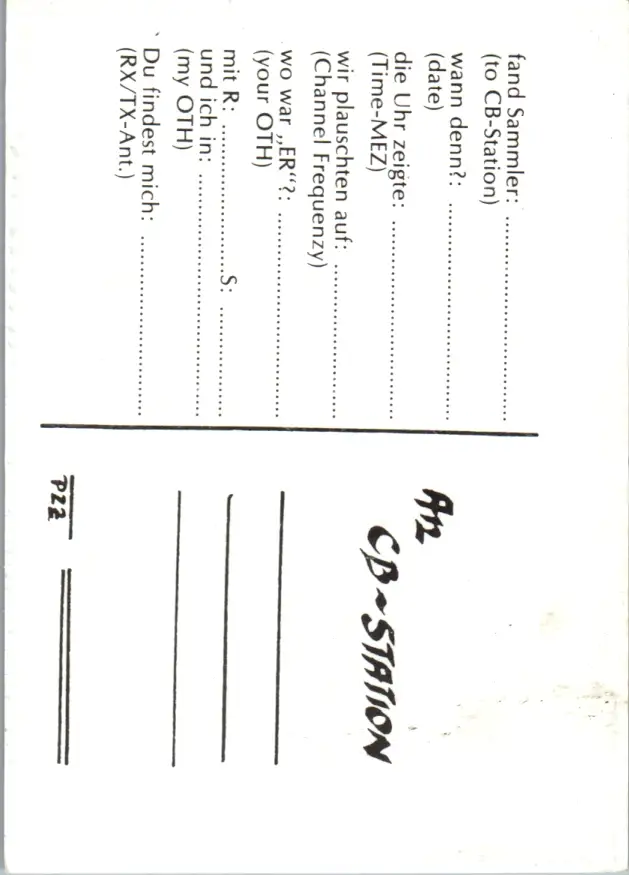 fand Sammler: ........................
(to CB-Station)
wann denn?: ........................
(date)
die Uhr zeigte: ........................
(Time-MEZ)
wir plauschten auf: ........................
(Channel Frequenzy)
wo war „ER“?: ........................
(your OTH)
mit R: ........................S: ............
und ich in: ........................
(my OTH)
Du findest mich: ........................
(RX/TX-Ant.)
An
CB~STATION
PLZ